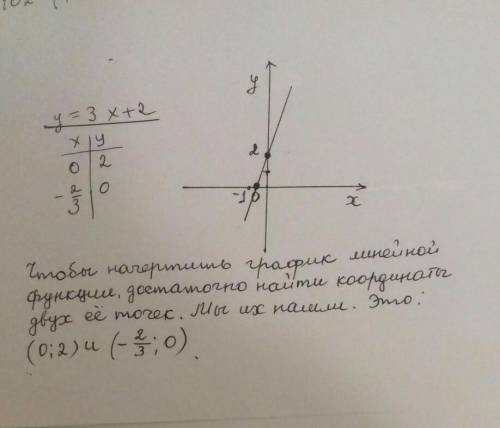 y = 3x+2
x | y
0 | 2
-2/3 | 0
y
2
-1 0
x
Чтобы начертить график линейной
функции, достаточно найти координаты
двух её точек. Мы их нашли. Это:
(0;2) и (-2/3; 0).